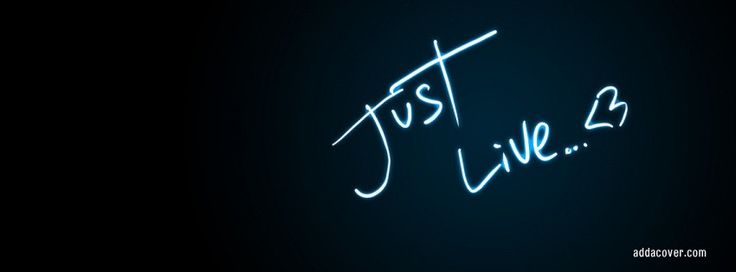 Just
Live...<3
addacover.com